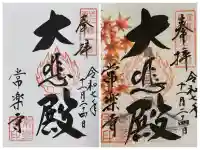 奉拝
大悲殿
令和七年
十一月二十四日
常楽寺
奉拝
大悲殿
令和七年
十一月二十四日
常楽寺